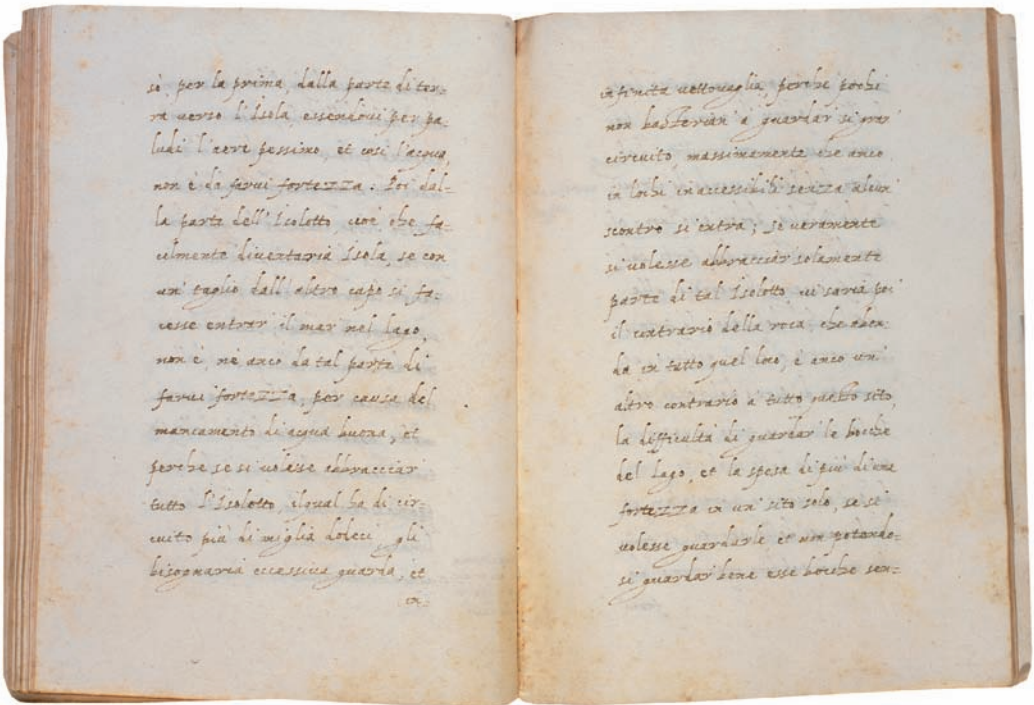 sò per la prima, dalla parte di ter=
ra verso l'Isola, essendovi per pa=
ludi l'aere pessimo, et cosi l'acqua,
non è da farvi fortezza: Poi dal=
la parte dell'Isolotto, cioè che fa=
cilmente diventaria Isola, se con
un' taglio dall'altro capo si fa=
cesse entrar il mar nel lago,
non è, nè anco da tal parte di
farvi fortezza, per causa del
mancamento di acqua buona, et
perche se si volesse abbracciar
tutto l'Isolotto, ilqual ha di cir=
cuito più di miglia dodeci, gli
bisognaria eccessiva guarda, et
in=
infinita vettovaglia, perche pochi
non basterian' à guardar si gran'
circuito, massimamente che anco
in lochi inaccessibili senza alcun'
scontro si entra; Se veramente
si volesse abbracciar solamente
parte di tal Isolotto, vi saria poi
il contrario della roca, che abon=
da in tutto quel loco, è anco un'
altro contrario à tutto questo sito,
la difficultà di guardar le bocche
del Lago, et la spesa di più di una
fortezza in un' sito solo, se si
volesse guardarle, et non potendo=
si guardar bene esse bocche sen=